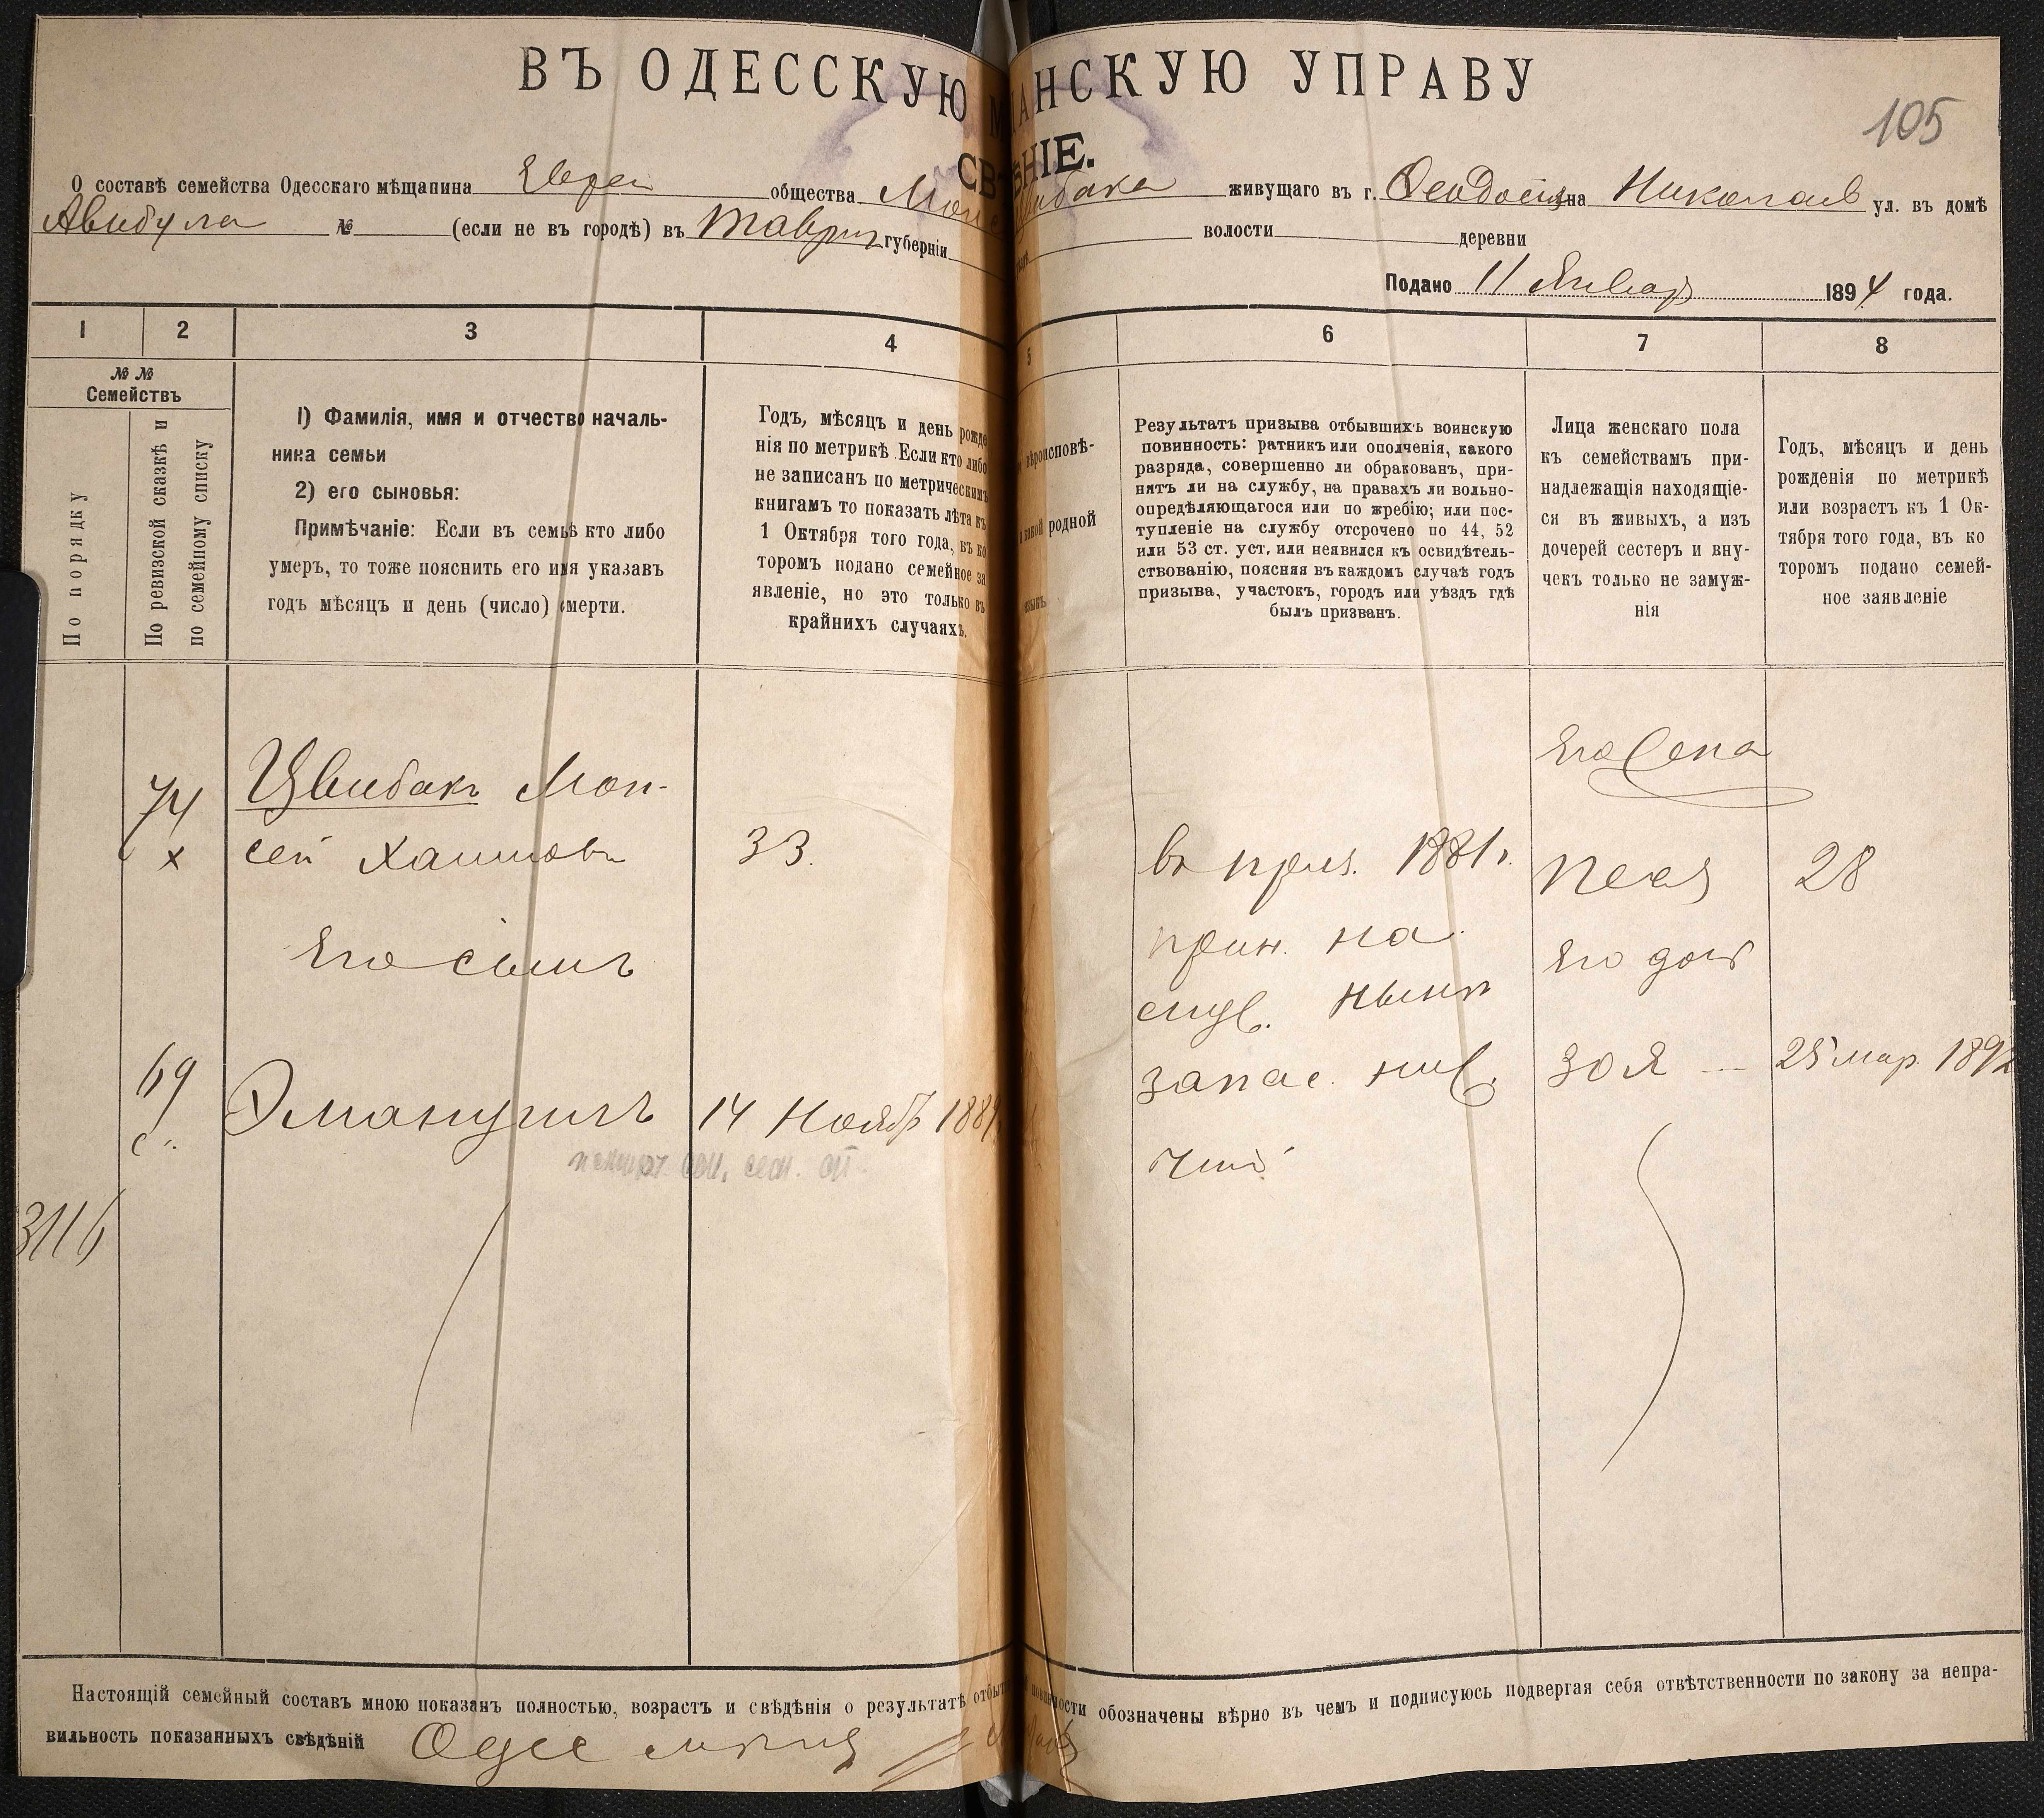 ВЪ ОДЕССКУЮ М АНСКУЮ УПРАВУ
105
СВ ѢНІЕ.
О составѣ семейства Одесскаго мѣщанина Еврея общества Моис Цвибака живущаго въ г. Ѳеодосіи на Николаев ул. въ домѣ
№ (если не въ городѣ) въ Таврич губерніи волости деревни
Подано 11 Январ 1894 года.
1 2 3 4 5 6 7 8
№ №
Семействъ
По порядку
По ревизской сказкѣ и
по семейному списку
1) Фамилія, имя и отчество началь-
ника семьи
2) его сыновья:
Примѣчаніе: Если въ семьѣ кто либо
умеръ, то тоже пояснить его имя указавъ
годъ мѣсяцъ и день (число) смерти.
Годъ, мѣсяцъ и день рожде
нія по метрикѣ. Если кто либо
не записанъ по метрическимъ
книгамъ то показать лѣта къ
1 Октября того года, въ ко
торомъ подано семейное за
явленіе, но это только въ
крайнихъ случаяхъ.
вѣроисповѣ-
какой родной
языкъ
Результатъ призыва отбывшихъ воинскую
повинность: ратникъ или ополченія, какого
разряда, совершенно ли обракованъ, при-
нятъ ли на службу, на правахъ ли вольно-
опредѣляющагося или по жребію; или пос-
тупленіе на службу отсрочено по 44, 52
или 53 ст. уст. или неявился къ освидѣтель-
ствованію, поясняя въ каждомъ случаѣ годъ
призыва, участокъ, городъ или уѣздъ гдѣ
былъ призванъ.
Лица женскаго пола
къ семействамъ при-
надлежащія находящіе-
ся въ живыхъ, а изъ
дочерей сестеръ и вну-
чекъ только не замуж-
нія
Годъ, мѣсяцъ и день
рожденія по метрикѣ
или возрастъ къ 1 Ок-
тября того года, въ ко
торомъ подано семей-
ное заявленіе
74
х
Цвибакъ Мои-
сей Хаимовъ
33.
Его сынъ
69
Эмануилъ
14 Ноябр 1889
3116
въ приз. 1881 г.
прин. на
служ. нынѣ
запас. ниж.
чинъ
Его жена
28
Его доч
Зоя
25 мар. 1892
Настоящій семейный составъ мною показанъ полностью, возрастъ и свѣдѣнія о результатѣ отбыт повинности обозначены вѣрно въ чемъ и подписуюсь подвергая себя отвѣтственности по закону за непра-
вильность показанныхъ свѣдѣній